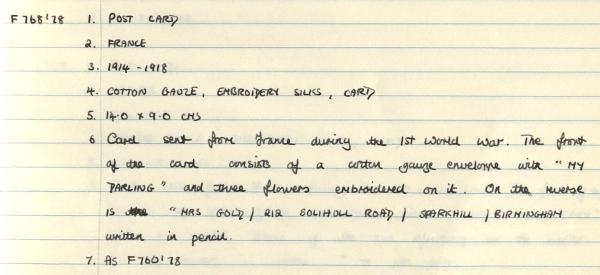 F768'78 1. POST CARD
2. FRANCE
3. 1914 - 1918
4. COTTON GAUZE, EMBROIDERY SILKS, CARD
5. 14.0 x 9.0 CMS
6 Card sent from France during the 1st World War. The front
of the card consists of a cotton gauze envelope with "MY
DARLING" and three flowers embroidered on it. On the reverse
is the "MRS GOLD / 212 SOLIHULL ROAD / SPARKHILL / BIRMINGHAM
written in pencil.
7. AS F760'78